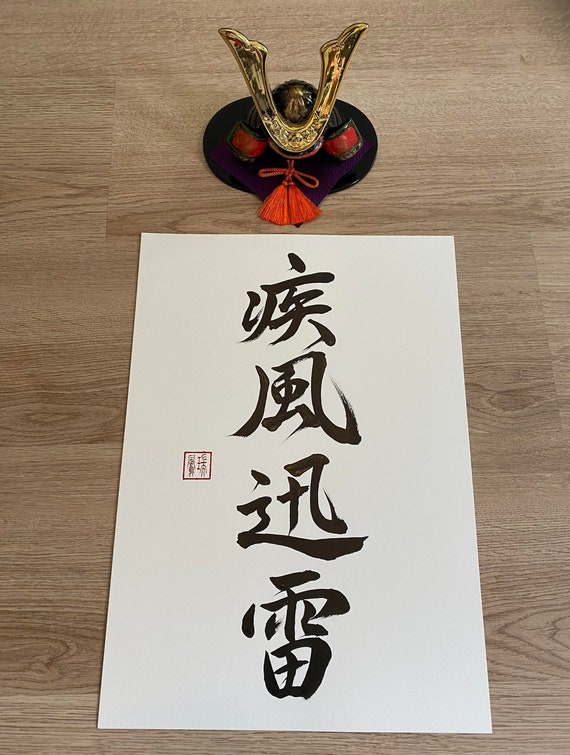 疾風迅雷